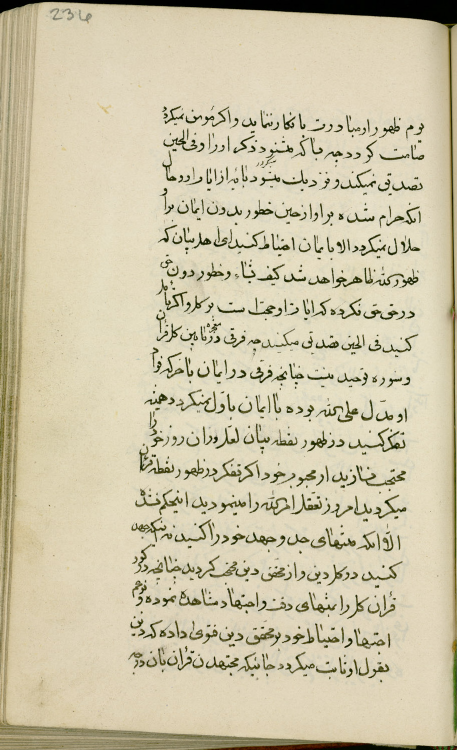 236
یوم ظهور او مبادرت بانکار ننماید و اگر مؤمن نمیگردد
صامت گردد چه باکه میشنود ذکر او را و فی الحین
تصدیق نمیکند و نزدیک میشود بآیه از آیات او و حال
آنکه حرام شده بر او از حین خطور بدون ایمان بر او
حلال نمیگردد الا بایمان احتیاط کنید ای اهل بیان که
ظهور الله ظاهر خواهد شد کیف یشاء و خطور دون حق
در حق حق نکرده که آیات او حجت است بر کل و اگر
کنید فی الحین تصدیق میکنید چه فرقی در مابین کل قرآن
و سوره توحید نیست چنانچه فرقی در ایمان باخر که
او یدل علی الله بوده با ایمان باول نمیگردد همین
تفکر کنید در ظهور نقطه بیان لعل در آن روز خود را
محتجب نسازید از محبوب خود اگر تفکر در ظهور نقطه فرقان
میکردید امروز تعقل امر الله را مینمودید اینحکم نشده
الا آنکه منتهای جد و جهد خود را کنید نه اینکه جهد
کنید در کل دین و از محقق دین محتجب گردید چنانچه در کور
قرآن کل را بمنتهای دقت و اجتهاد مشاهده نموده و
اجتهاد و احتیاط خود بر محقق دین فتوی داده که دین
بقول او ثابت میگردد جائیکه مجتهدین قرآن بآن درجه